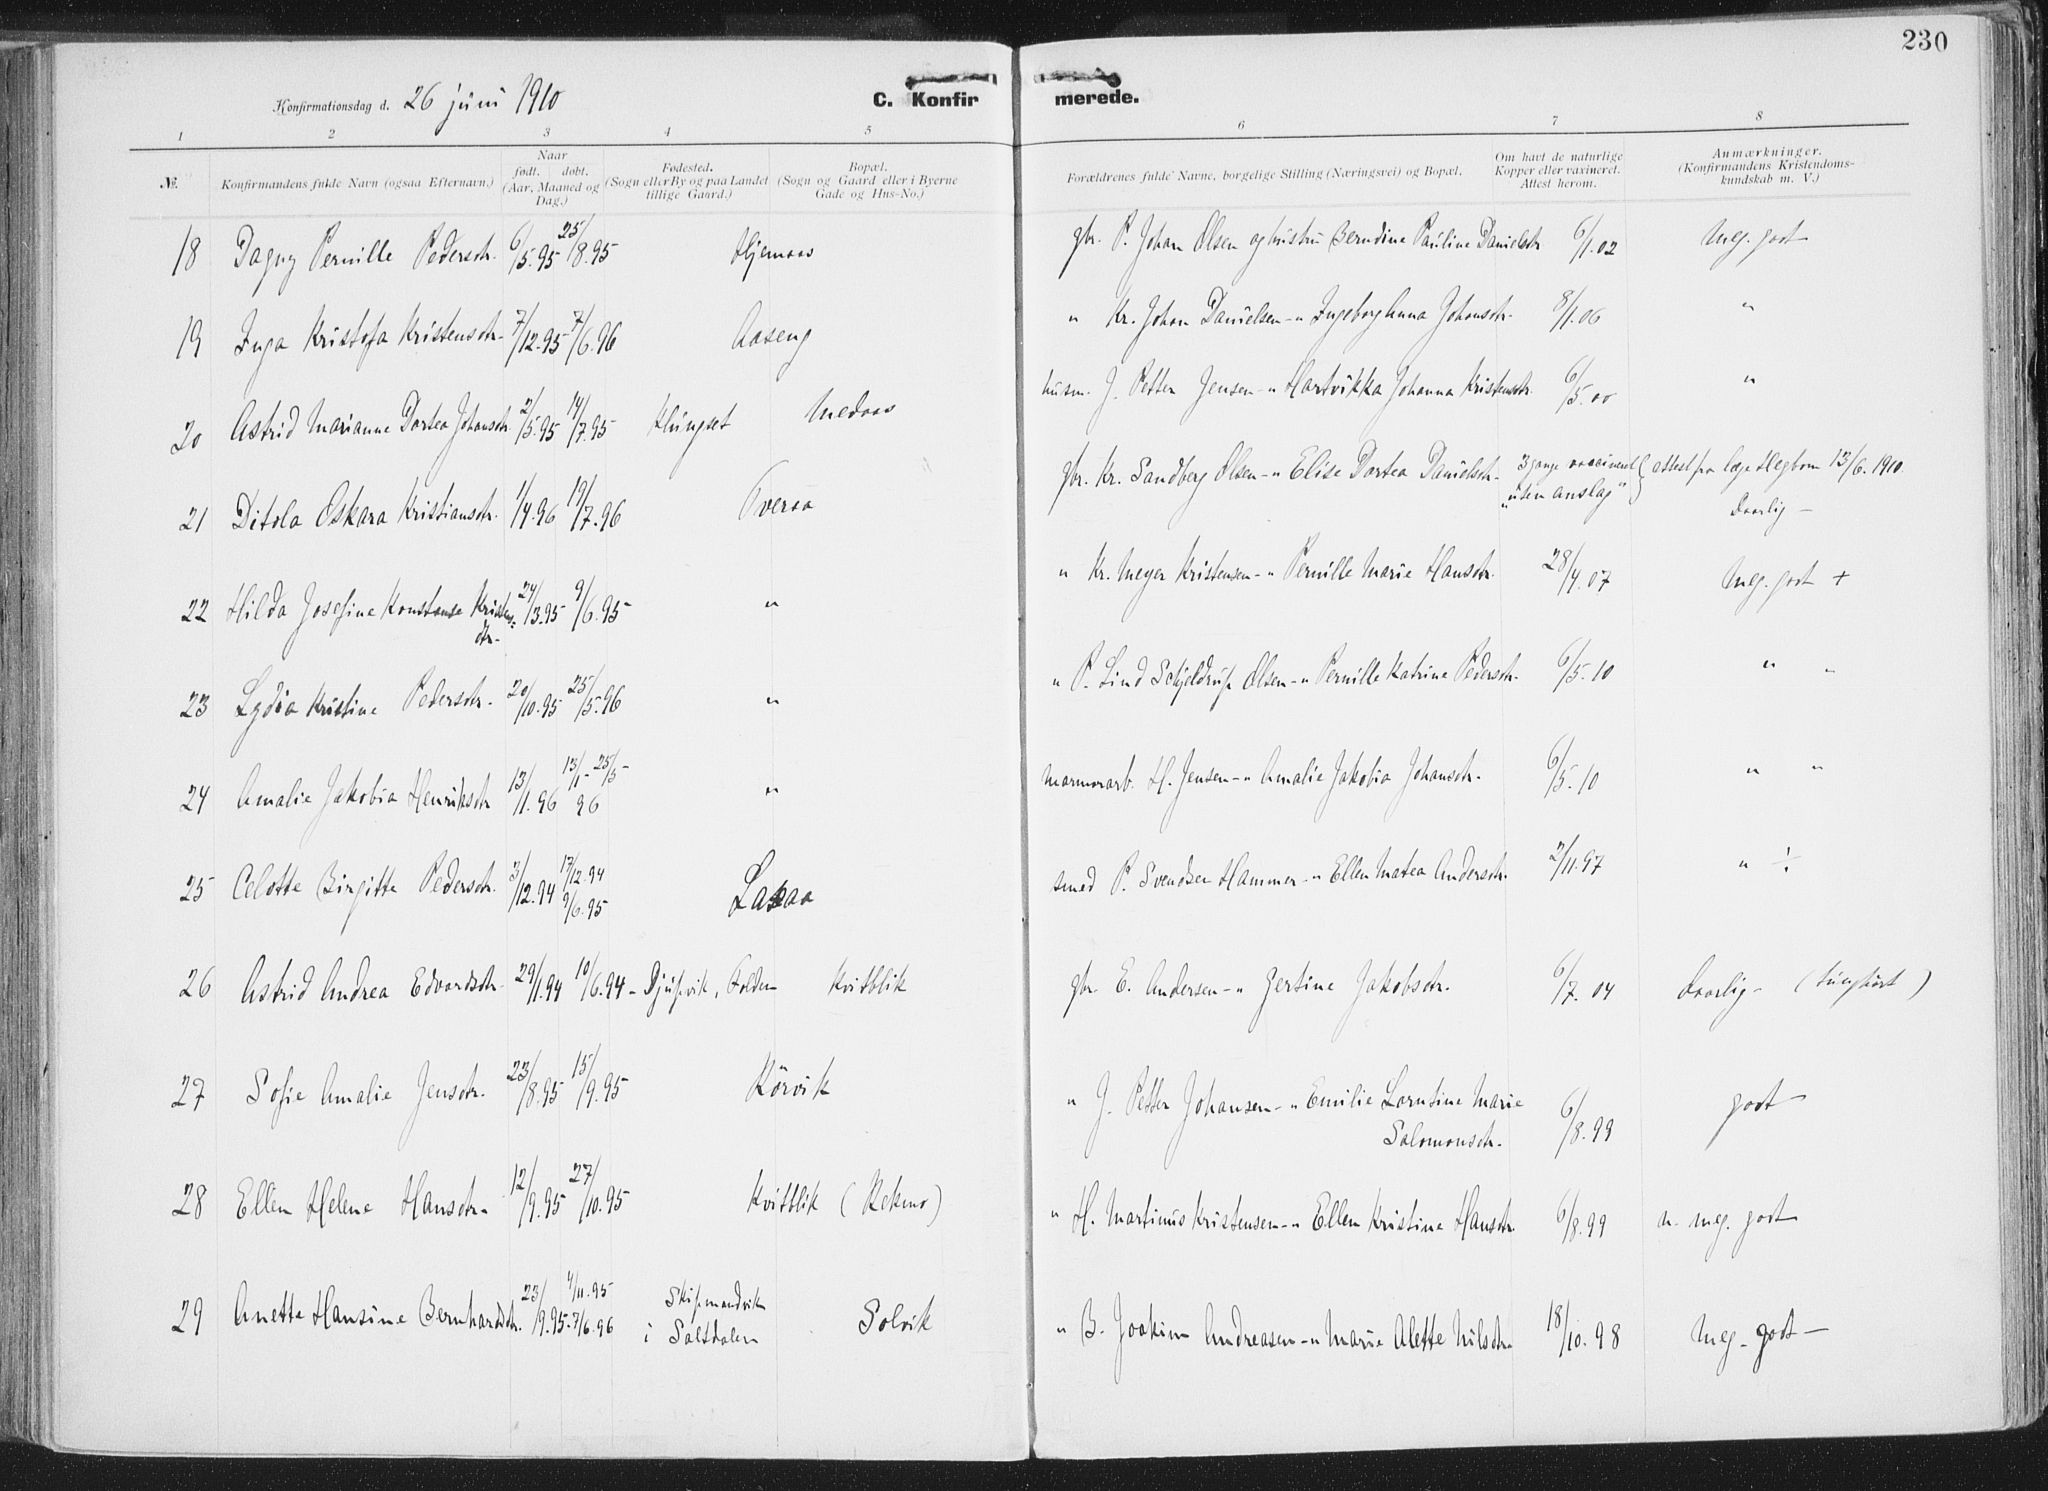 230
Konfirmationsdag d. 26 juni 1910
C. Konfirmerede.
1 2 3 4 5 6 7 8
№. Konfirmandens fulde Navn (ogsaa Efternavn.) Naar født. døbt. (Aar, Maaned og Dag.) Fødested. (Sogn eller By og paa Landet tillige Gaard.) Bopæl. (Sogn og Gaard eller i Byerne Gade og Hus-No.) Forældrenes fulde Navne, borgelige Stilling (Næringsvei) og Bopæl. Om havt de naturlige Kopper eller vaxineret. Attest herom. Anmærkninger. (Konfirmandens Kristendomskundskab m. V.)
18 Dagny Pernille Pedersdtr. 6/5.95 25/8.95 Hjemaas gbr. P. Johan Olsen og hustru Berndine Pauline Danielsdtr 6/1.02 Meg. godt
19 Inga Kristofa Kristensdtr. 7/12.95 7/6.96 Aaseng " Kr. Johan Danielsen - " Ingeborg Anna Johansdtr. 8/1.06 "
20 Astrid Marianne Dortea Johansdtr. 2/5.95 14/7.95 Klungset Medaas husm. J. Petter Jensen - " Hartvikka Johanna Kristensdtr. 6/5.00 "
21 Ditola Oskara Kristiansdtr. 1/4.96 19/7.96 Tveraa gbr. Kr. Sandberg Olsen - " Elise Dortea Danielsdtr. 3 gange vaccinert "uten anslag" } attest fra læge Hegbom 13/6.1910
Daarlig -
22 Hilda Josefine Konstanse Kristensdtr. 24/3.95 9/6.95 " " Kr. Meyer Kristensen - " Pernille Marie Hansdtr. 28/4.07 Meg. godt +
23 Lydia Kristine Pedersdtr. 20/10.95 25/5.96 " " P. Lind Schjeldrup Olsen - " Pernille Katrine Pedersdtr. 6/5.10 " "
24 Amalie Jakobia Henriksdtr 13/1.96 13/1 - 25/5 96 " marmorarb. H. Jensen - " Amalie Jakobia Johansdtr. 6/5.10 " "
25 Celotte Birgitte Pedersdtr. 3/12.94 17/12.94 9/6.95 Laxaa smed P. Svendsen Hammer - " Ellen Matea Andersdtr. 2/11.97 " ÷
26 Astrid Andrea Edvardsdtr. 29/1.94 10/6.94 - Djupvik, Folden Kvitblik gbr. E. Andersen - " Zertine Jakobsdtr. 6/7.04 Daarlig - (tunghørt)
27 Sofie Amalie Jensdtr. 23/8.95 15/9.95 Kørvik " J. Petter Johansen - " Emilie Lorntine Marie Salomonsdtr. 6/8.99 godt
28 Ellen Helene Hansdtr. 12/9.95 27/10.95 Kvitblik (Rekmo) " H. Martinus Kristensen - " Ellen Kristine Hansdtr. 6/8.99 n. meg. godt
29 Anetta Hansine Bernhardsdtr. 23/9.95 4/11.95 - 7/6.96 Skipmandvik i Saltdalen Solvik " B. Joakim Andreasen - " Marie Alette Nilsdtr. 18/10.98 Meg. godt -